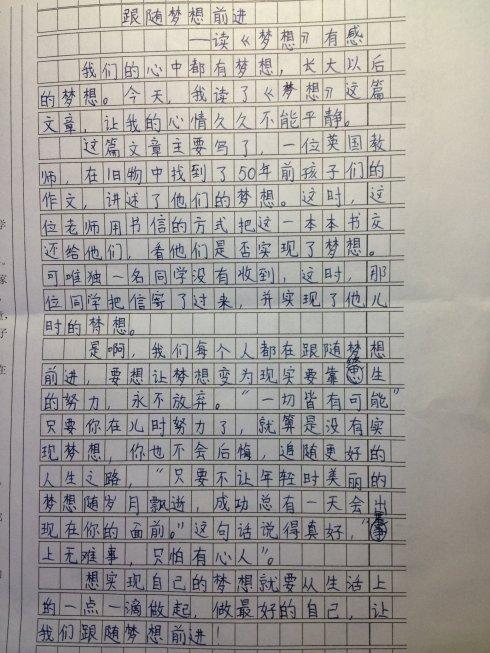 跟随梦想前进
——读《梦想》有感
我们的心中都有梦想，长大以后
的梦想。今天，我读了《梦想》这篇
文章，让我的心情久久不能平静。
这篇文章主要写了，一位英国教
师，在旧物中找到了50年前孩子们的
作文，讲述了他们的梦想。这时，这
位老师用书信的方式把这一本本书交
还给他们，看他们是否实现了梦想。
可唯独一名同学没有收到，这时，那
位同学把信寄了过来，并实现了他儿
时的梦想。
是啊，我们每个人都在跟随梦想
前进，要想让梦想变为现实要靠终生
的努力，永不放弃。“一切皆有可能”
只要你在儿时努力了，就算是没有实
现梦想，你也不会后悔，追随更好的
人生之路，“只要不让年轻时美丽的
梦想随岁月飘逝，成功总有一天会出
现在你的面前。”这句话说得真好，“事
上无难事，只怕有心人”。
想实现自己的梦想就要从生活上
的一点一滴做起，做最好的自己，让
我们跟随梦想前进！
学
家
子
在